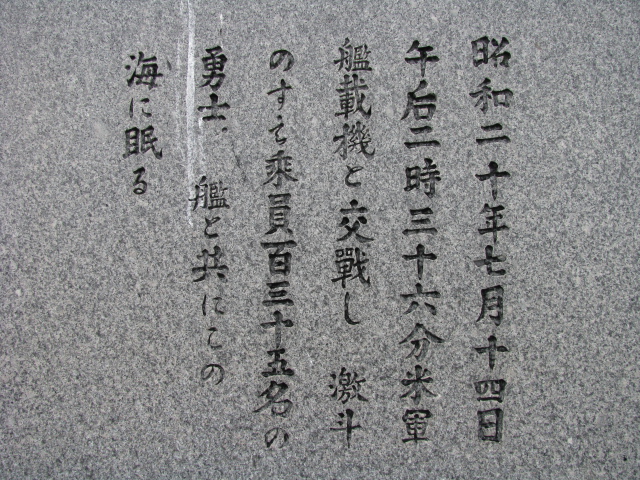 昭和二十年七月十四日
午后二時三十六分米軍
艦載機と交戰し　激斗
のすえ乘員百三十五名の
勇士、艦と共にこの
海に眠る